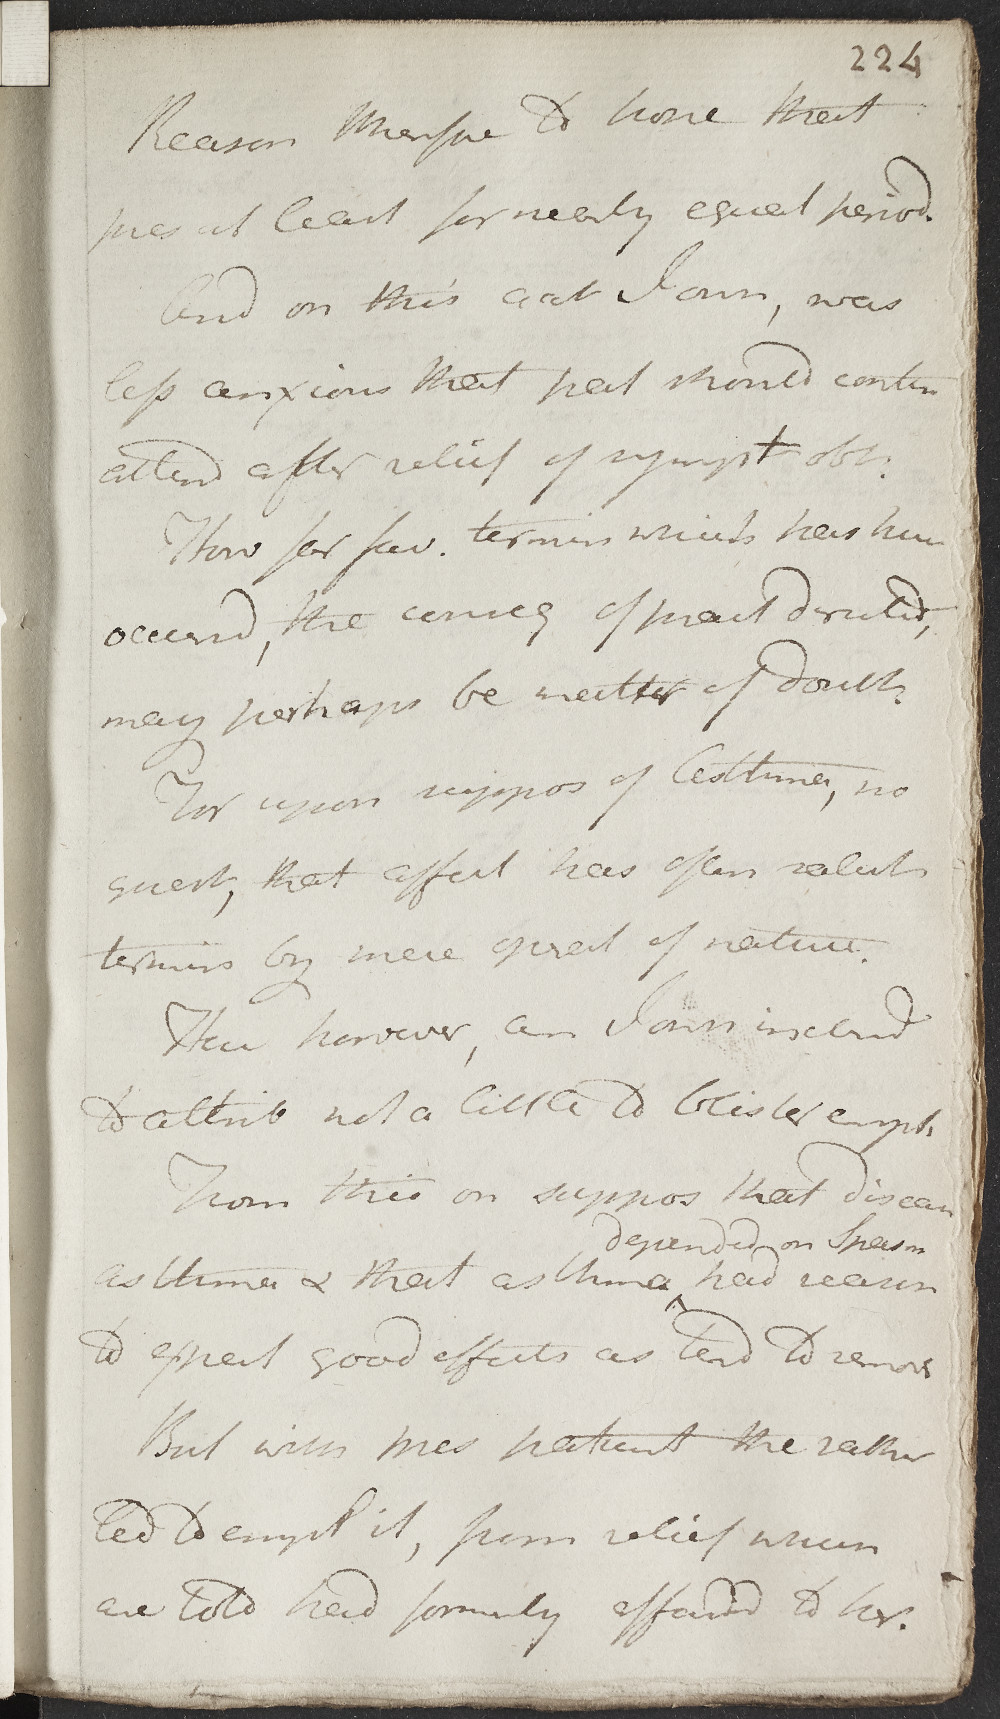 224
Reason therefore to hope that
free at least for nearly equal period.
And on this acct I own, was
less anxious that pat should contin
attend after relief of sympt obt.
How far fav. termin which has here
occurred, the conseq of pract directed,
may perhaps be matter of doubt.
For upon suppos of Asthma, no
quest, that affect has often salut
termin by mere operat of nature.
Here however, am I own inclined
to attrib not a little to blister empl.
From this on suppos that disease
depended on Spasm
asthma & that asthma had reason
to expect good effects as tend to remove
But with this patient the rather
led to empl it, from relief which
are told had formerly afforded to her.